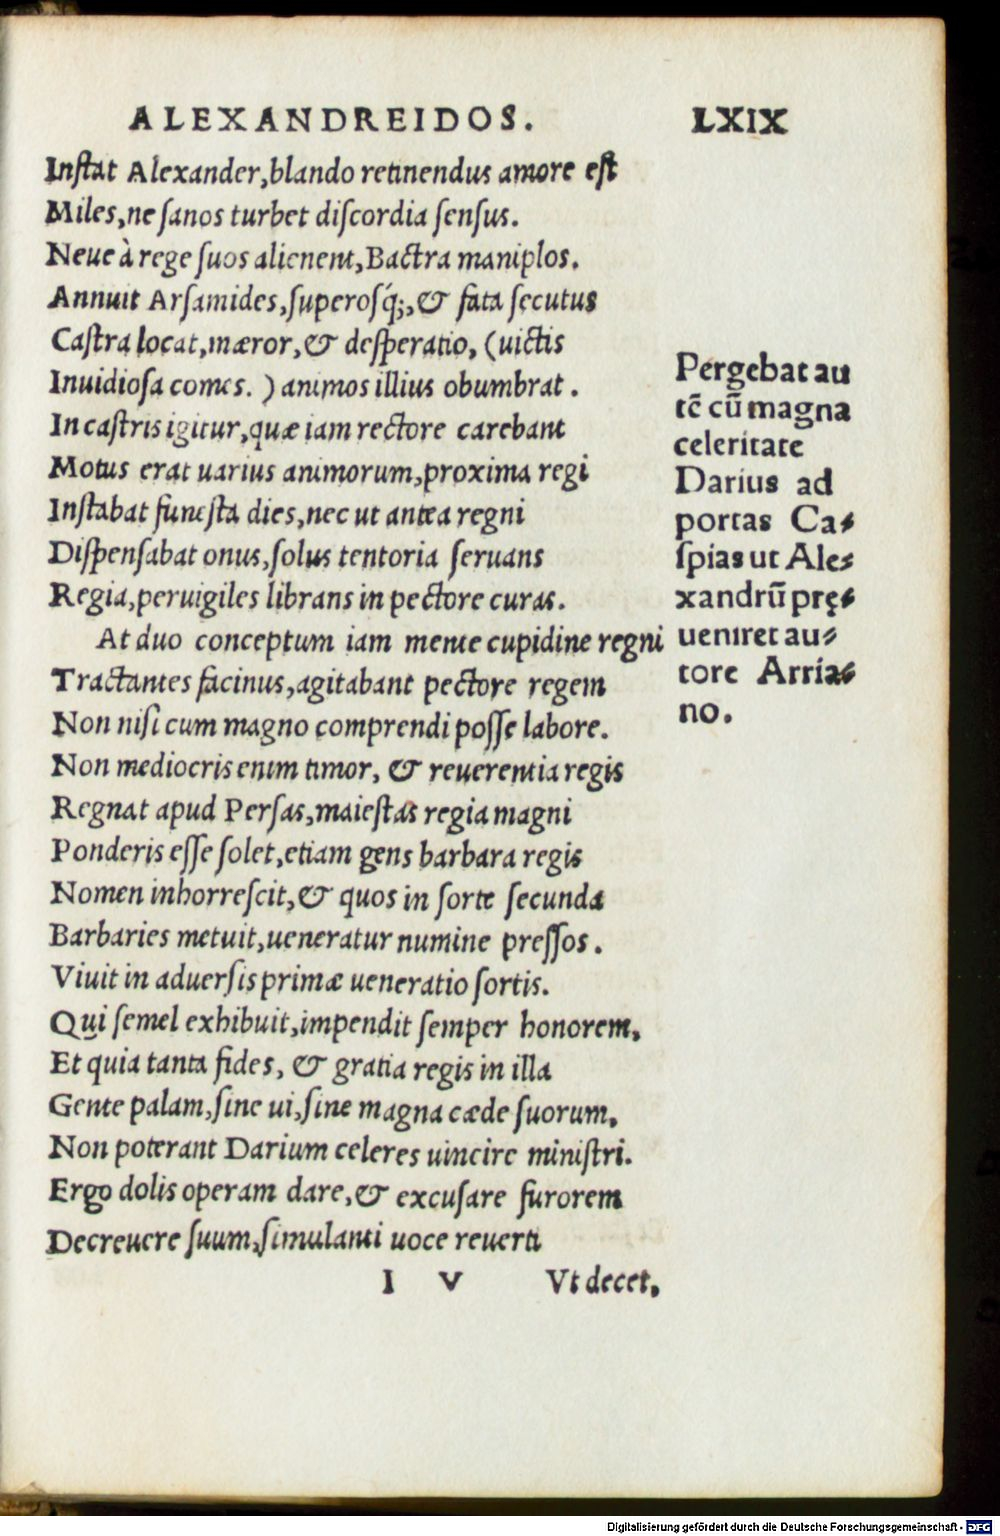 ALEXANDREIDOS. LXIX
Inſtat Alexander,blando retinendus amore eſt
Miles,ne ſanos turbet diſcordia ſenſus.
Neue à rege ſuos alienent,Bactra maniplos.
Annuit Arſamides,ſuperoſq́;,& fata ſecutus
Caſtra locat,mæror,& deſperatio, (uictis
Inuidioſa comes. ) animos illius obumbrat.
In caſtris igitur,quæ iam rectore carebant
Motus erat uarius animorum,proxima regi
Inſtabat funeſta dies,nec ut antea regni
Diſpenſabat onus,ſolus tentoria ſeruans
Regia,peruigiles librans in pectore curas.
At duo conceptum iam mente cupidine regni
Tractantes facinus,agitabant pectore regem
Non niſi cum magno comprendi poſſe labore.
Non mediocris enim timor, & reuerentia regis
Regnat apud Perſas,maieſtas regia magni
Ponderis eſſe ſolet,etiam gens barbara regis
Nomen inhorreſcit,& quos in ſorte ſecunda
Barbaries metuit,ueneratur numine preſſos.
Viuit in aduerſis primæ ueneratio ſortis.
Qui ſemel exhibuit,impendit ſemper honorem,
Et quia tanta fides, & gratia regis in illa
Gente palam,ſine ui,ſine magna cæde ſuorum,
Non poterant Darium celeres uincire miniſtri.
Ergo dolis operam dare,& excuſare furorem
Decreuere ſuum,ſimulanti uoce reuerti
I V Vt decet,
Pergebat au
tē cū magna
celeritate
Darius ad
portas Ca⸗
ſpias ut Ale⸗
xandrū prę⸗
ueniret au⸗
tore Arria⸗
no.
Digitalisierung gefördert durch die Deutsche Forschungsgemeinschaft - DFG